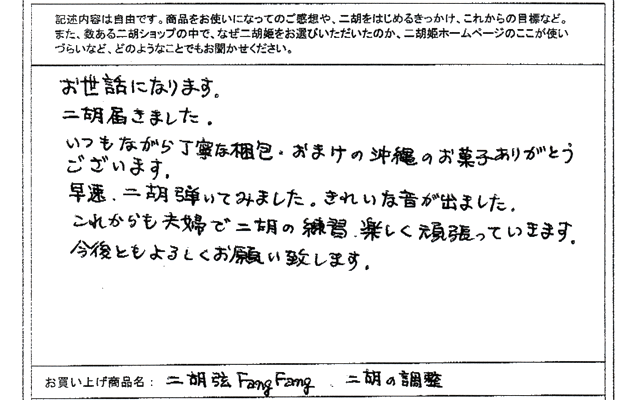 記述内容は自由です。商品をお使いになってのご感想や、二胡をはじめるきっかけ、これからの目標など。
また、数ある二胡ショップの中で、なぜ二胡姫をお選びいただいたのか、二胡姫ホームページのここが使い
づらいなど、どのようなことでもお聞かせください。
お世話になります。
二胡届きました。
いつもながら丁寧な梱包・おまけの沖縄のお菓子ありがとう
ございます。
早速、二胡弾いてみました。きれいな音が出ました。
これからも夫婦で二胡の練習、楽しく頑張っていきます。
今後ともよろしくお願い致します。
お買い上げ商品名： 二胡弦FangFang 、二胡の調整